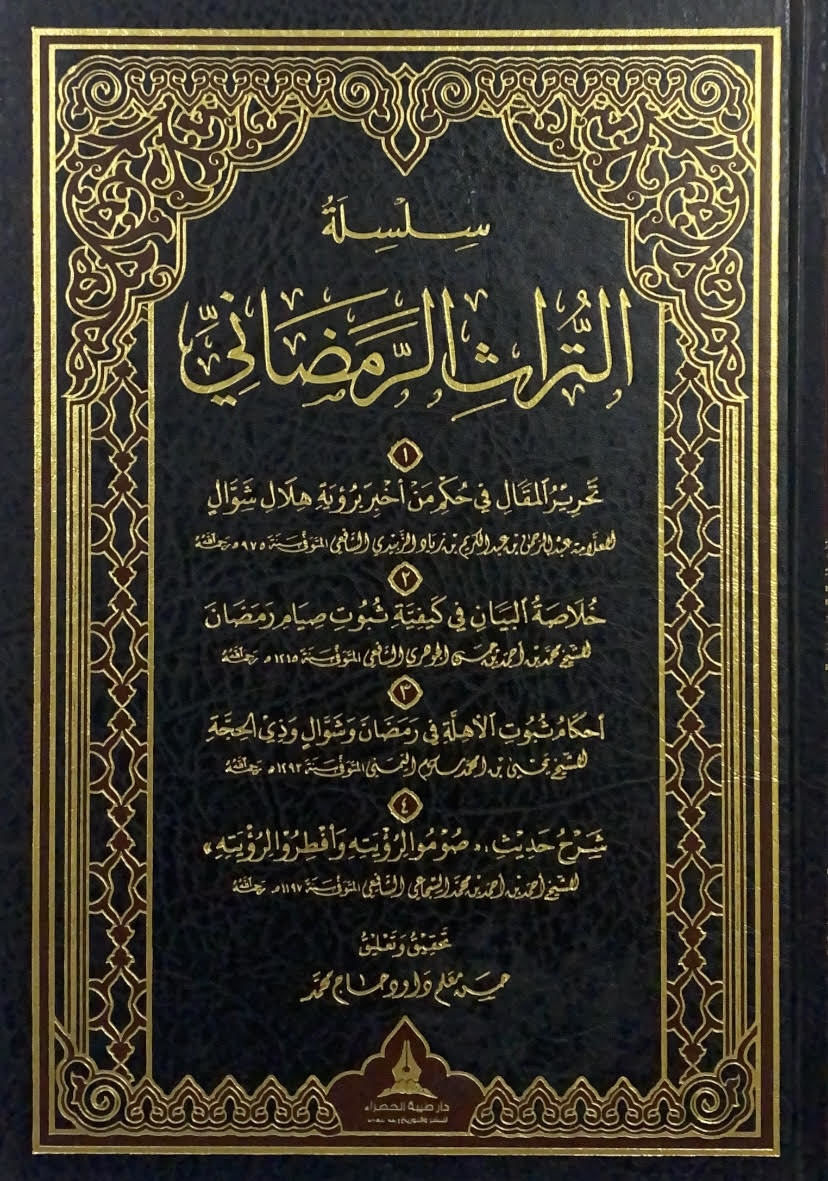 سِلْسِلَةُ
التُّرَاثِ الرَّمَضَانِيِّ
١
تَحْرِيْرُ المَقَالِ فِي حُكْمِ مَنْ أَخْبَرَ بِرُؤْيَةِ هِلَالِ شَوَّالٍ
للعلّامة عبد الرحمن بن عبد الكريم بن زياد الزبيدي الشافعي المتوفى سنة ٩٧٥ هـ رحمه الله
٢
خُلَاصَةُ البَيَانِ فِي كَيْفِيَّةِ ثُبُوتِ صِيَامِ رَمَضَانَ
للشيخ محمد بن أحمد بن حسن الجوهري الشافعي المتوفى سنة ١٢١٥ هـ رحمه الله
٣
أَحْكَامُ ثُبُوتِ الأَهِلَّةِ فِي رَمَضَانَ وَشَوَّالٍ وَذِي الحِجَّةِ
للشيخ بن اليمني المتوفى سنة ١٢٩٢ هـ رحمه الله
٤
شَرْحُ حَدِيْثِ: «صُوْمُوا لِرُؤْيَتِهِ وَأَفْطِرُوا لِرُؤْيَتِهِ»
للشيخ أحمد بن أحمد بن محمد السجاعي الشافعي المتوفى سنة ١١٩٧ هـ رحمه الله
تَحْقِيْقُ وَتَعْلِيْقُ
حسن معلم داود حاج محمد
دار طيبة الخضراء
للنشر والتوزيع